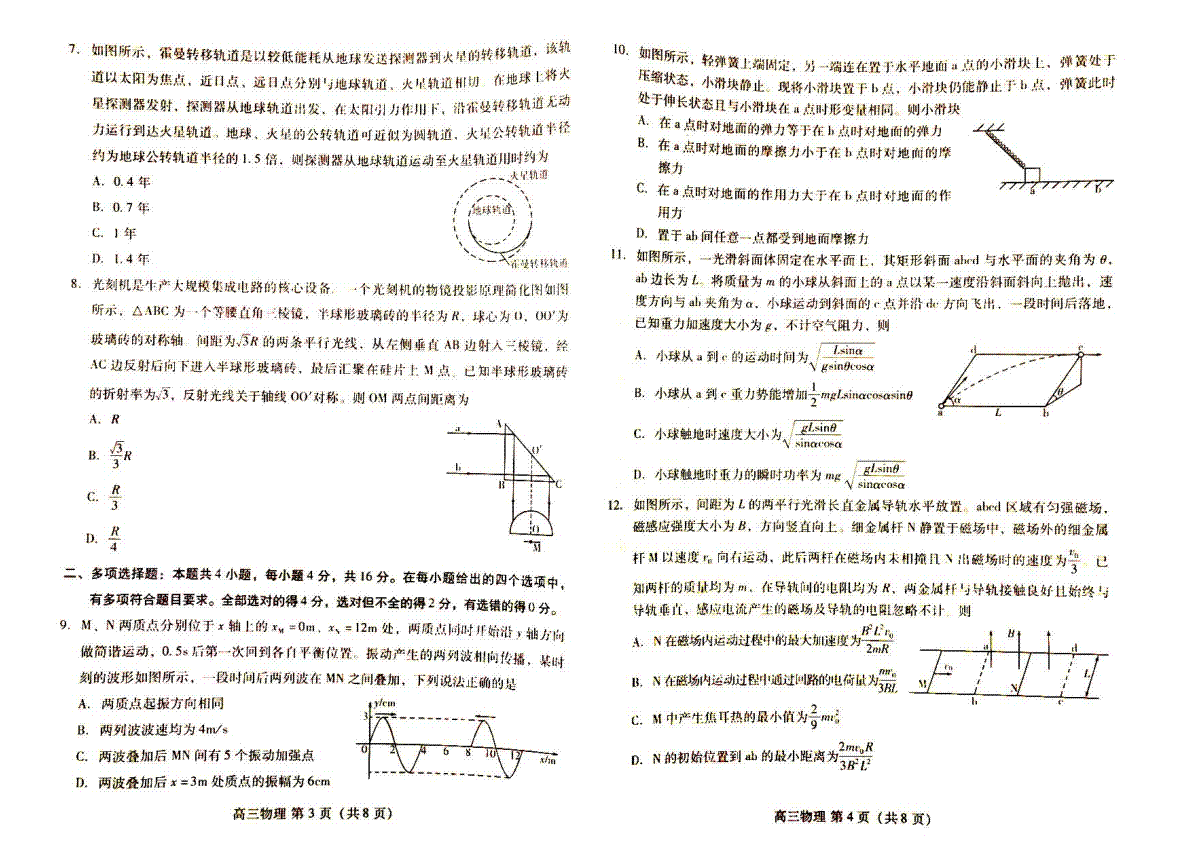 7. 如图所示，霍曼转移轨道是以较低能耗从地球发送探测器到火星的转移轨道，该轨
道以太阳为焦点，近日点、远日点分别与地球轨道、火星轨道相切。在地球上将火
星探测器发射，探测器从地球轨道出发，在太阳引力作用下，沿霍曼转移轨道无动
力运行到达火星轨道。地球、火星的公转轨道可近似为圆轨道，火星公转轨道半径
约为地球公转轨道半径的1.5倍，则探测器从地球轨道运动至火星轨道用时约为
A. 0.4年
B. 0.7年
C. 1年
D. 1.4年
火星轨道
地球轨道
霍曼转移轨道
8. 光刻机是生产大规模集成电路的核心设备。一个光刻机的物镜投影原理简化图如图
所示，△ABC为一个等腰直角三棱镜，半球形玻璃砖的半径为R，球心为O，OO′为
玻璃砖的对称轴。间距为√3R的两条平行光线，从左侧垂直AB边射入三棱镜，经
AC边反射后向下进入半球形玻璃砖，最后汇聚在硅片上M点。已知半球形玻璃砖
的折射率为√3，反射光线关于轴线OO′对称。则OM两点间距离为
A. R
B. √3/3 R
C. R/3
D. R/4
a A O′
b B C
O
M
二、多项选择题：本题共4小题，每小题4分，共16分。在每小题给出的四个选项中，
有多项符合题目要求。全部选对的得4分，选对但不全的得2分，有选错的得0分。
9. M、N两质点分别位于x轴上的xM=0m、xN=12m处，两质点同时开始沿y轴方向
做简谐运动，0.5s后第一次回到各自平衡位置。振动产生的两列波相向传播，某时
刻的波形如图所示，一段时间后两列波在MN之间叠加，下列说法正确的是
A. 两质点起振方向相同
B. 两列波波速均为4m/s
C. 两波叠加后MN间有5个振动加强点
D. 两波叠加后x=3m处质点的振幅为6cm
y/cm
3
0 2 4 6 8 10 12 x/m
高三物理 第3页（共8页）
10. 如图所示，轻弹簧上端固定，另一端连在置于水平地面a点的小滑块上，弹簧处于
压缩状态，小滑块静止。现将小滑块置于b点，小滑块仍能静止于b点，弹簧此时
处于伸长状态且与小滑块在a点时形变量相同。则小滑块
A. 在a点时对地面的弹力等于在b点时对地面的弹力
B. 在a点时对地面的摩擦力小于在b点时对地面的摩
擦力
C. 在a点时对地面的作用力大于在b点时对地面的作
用力
D. 置于ab间任意一点都受到地面摩擦力
a b
11. 如图所示，一光滑斜面体固定在水平面上，其矩形斜面abcd与水平面的夹角为θ，
ab边长为L。将质量为m的小球从斜面上的a点以某一速度沿斜面斜向上抛出，速
度方向与ab夹角为α，小球运动到斜面的c点并沿dc方向飞出，一段时间后落地，
已知重力加速度大小为g，不计空气阻力，则
A. 小球从a到c的运动时间为√(Lsinα/gsinθcosα)
B. 小球从a到c重力势能增加1/2 mgLsinαcosαsinθ
C. 小球触地时速度大小为√(gLsinθ/sinαcosα)
D. 小球触地时重力的瞬时功率为mg√(gLsinθ/sinαcosα)
d c
α θ
a L b
12. 如图所示，间距为L的两平行光滑长直金属导轨水平放置。abcd区域有匀强磁场，
磁感应强度大小为B，方向竖直向上。细金属杆N静置于磁场中，磁场外的细金属
杆M以速度v₀向右运动，此后两杆在磁场内未相撞且N出磁场时的速度为v₀/3。已
知两杆的质量均为m，在导轨间的电阻均为R，两金属杆与导轨接触良好且始终与
导轨垂直，感应电流产生的磁场及导轨的电阻忽略不计。则
A. N在磁场内运动过程中的最大加速度为B²L²v₀/2mR
B. N在磁场内运动过程中通过回路的电荷量为mv₀/3BL
C. M中产生焦耳热的最小值为2/9 mv₀²
D. N的初始位置到ab的最小距离为2mv₀R/3B²L²
a B d
v₀ L
M N
b c
高三物理 第4页（共8页）